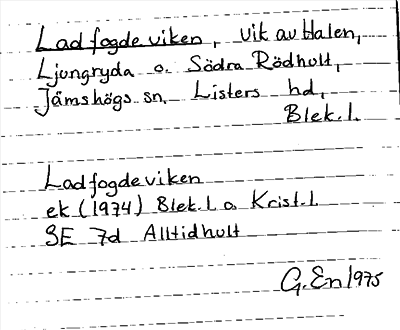 Ladfogdeviken, vik av Halen,
Ljungryda o. Södra Rödhult,
Jämshögs sn, Listers hd,
Blek. l.
Ladfogdeviken
ek (1974) Blek. l. o. Krist. l.
3E 7d Alltidhult
G. En 1975